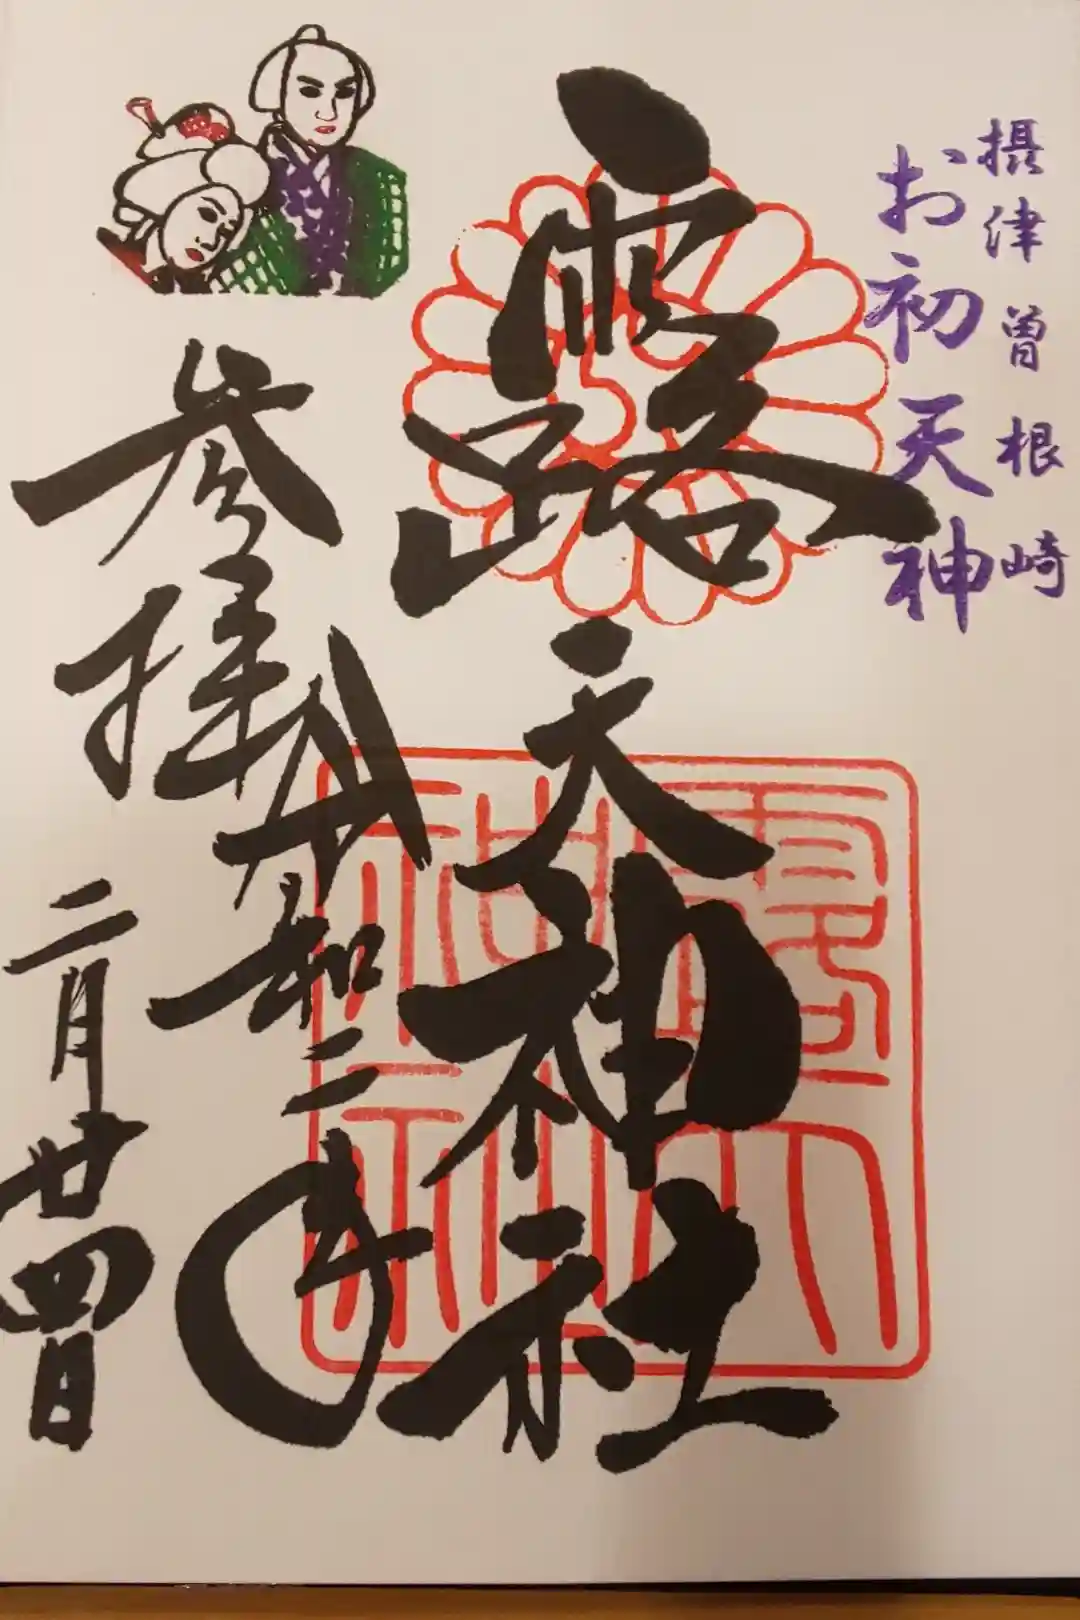 摂津曽根崎
お初天神
露天神社
露天
神社
参拝
令和二年
二月廿四日